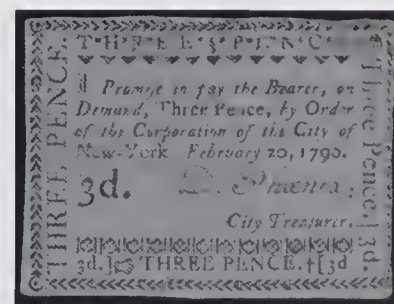 T·H·R·E·E·S·P·E·N·C·
I Promise to pay the Bearer, on
Demand, Three Pence, by Order
of the Corporation of the City of
New-York February 20, 1790.
3d. D. Phoenix,
City Treasurer.
3d.]☞ THREE PENCE.†[3d
THREE PENCE.
Three pence.] 3d.